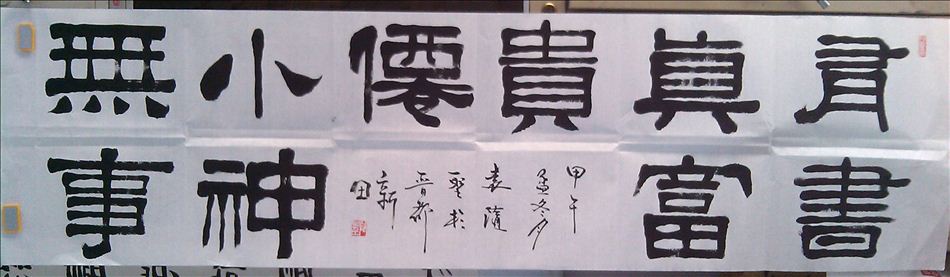 有書
真富
貴
無事
小神
僊
甲午
孟冬月
袁隨
聖於
晉都
新
田